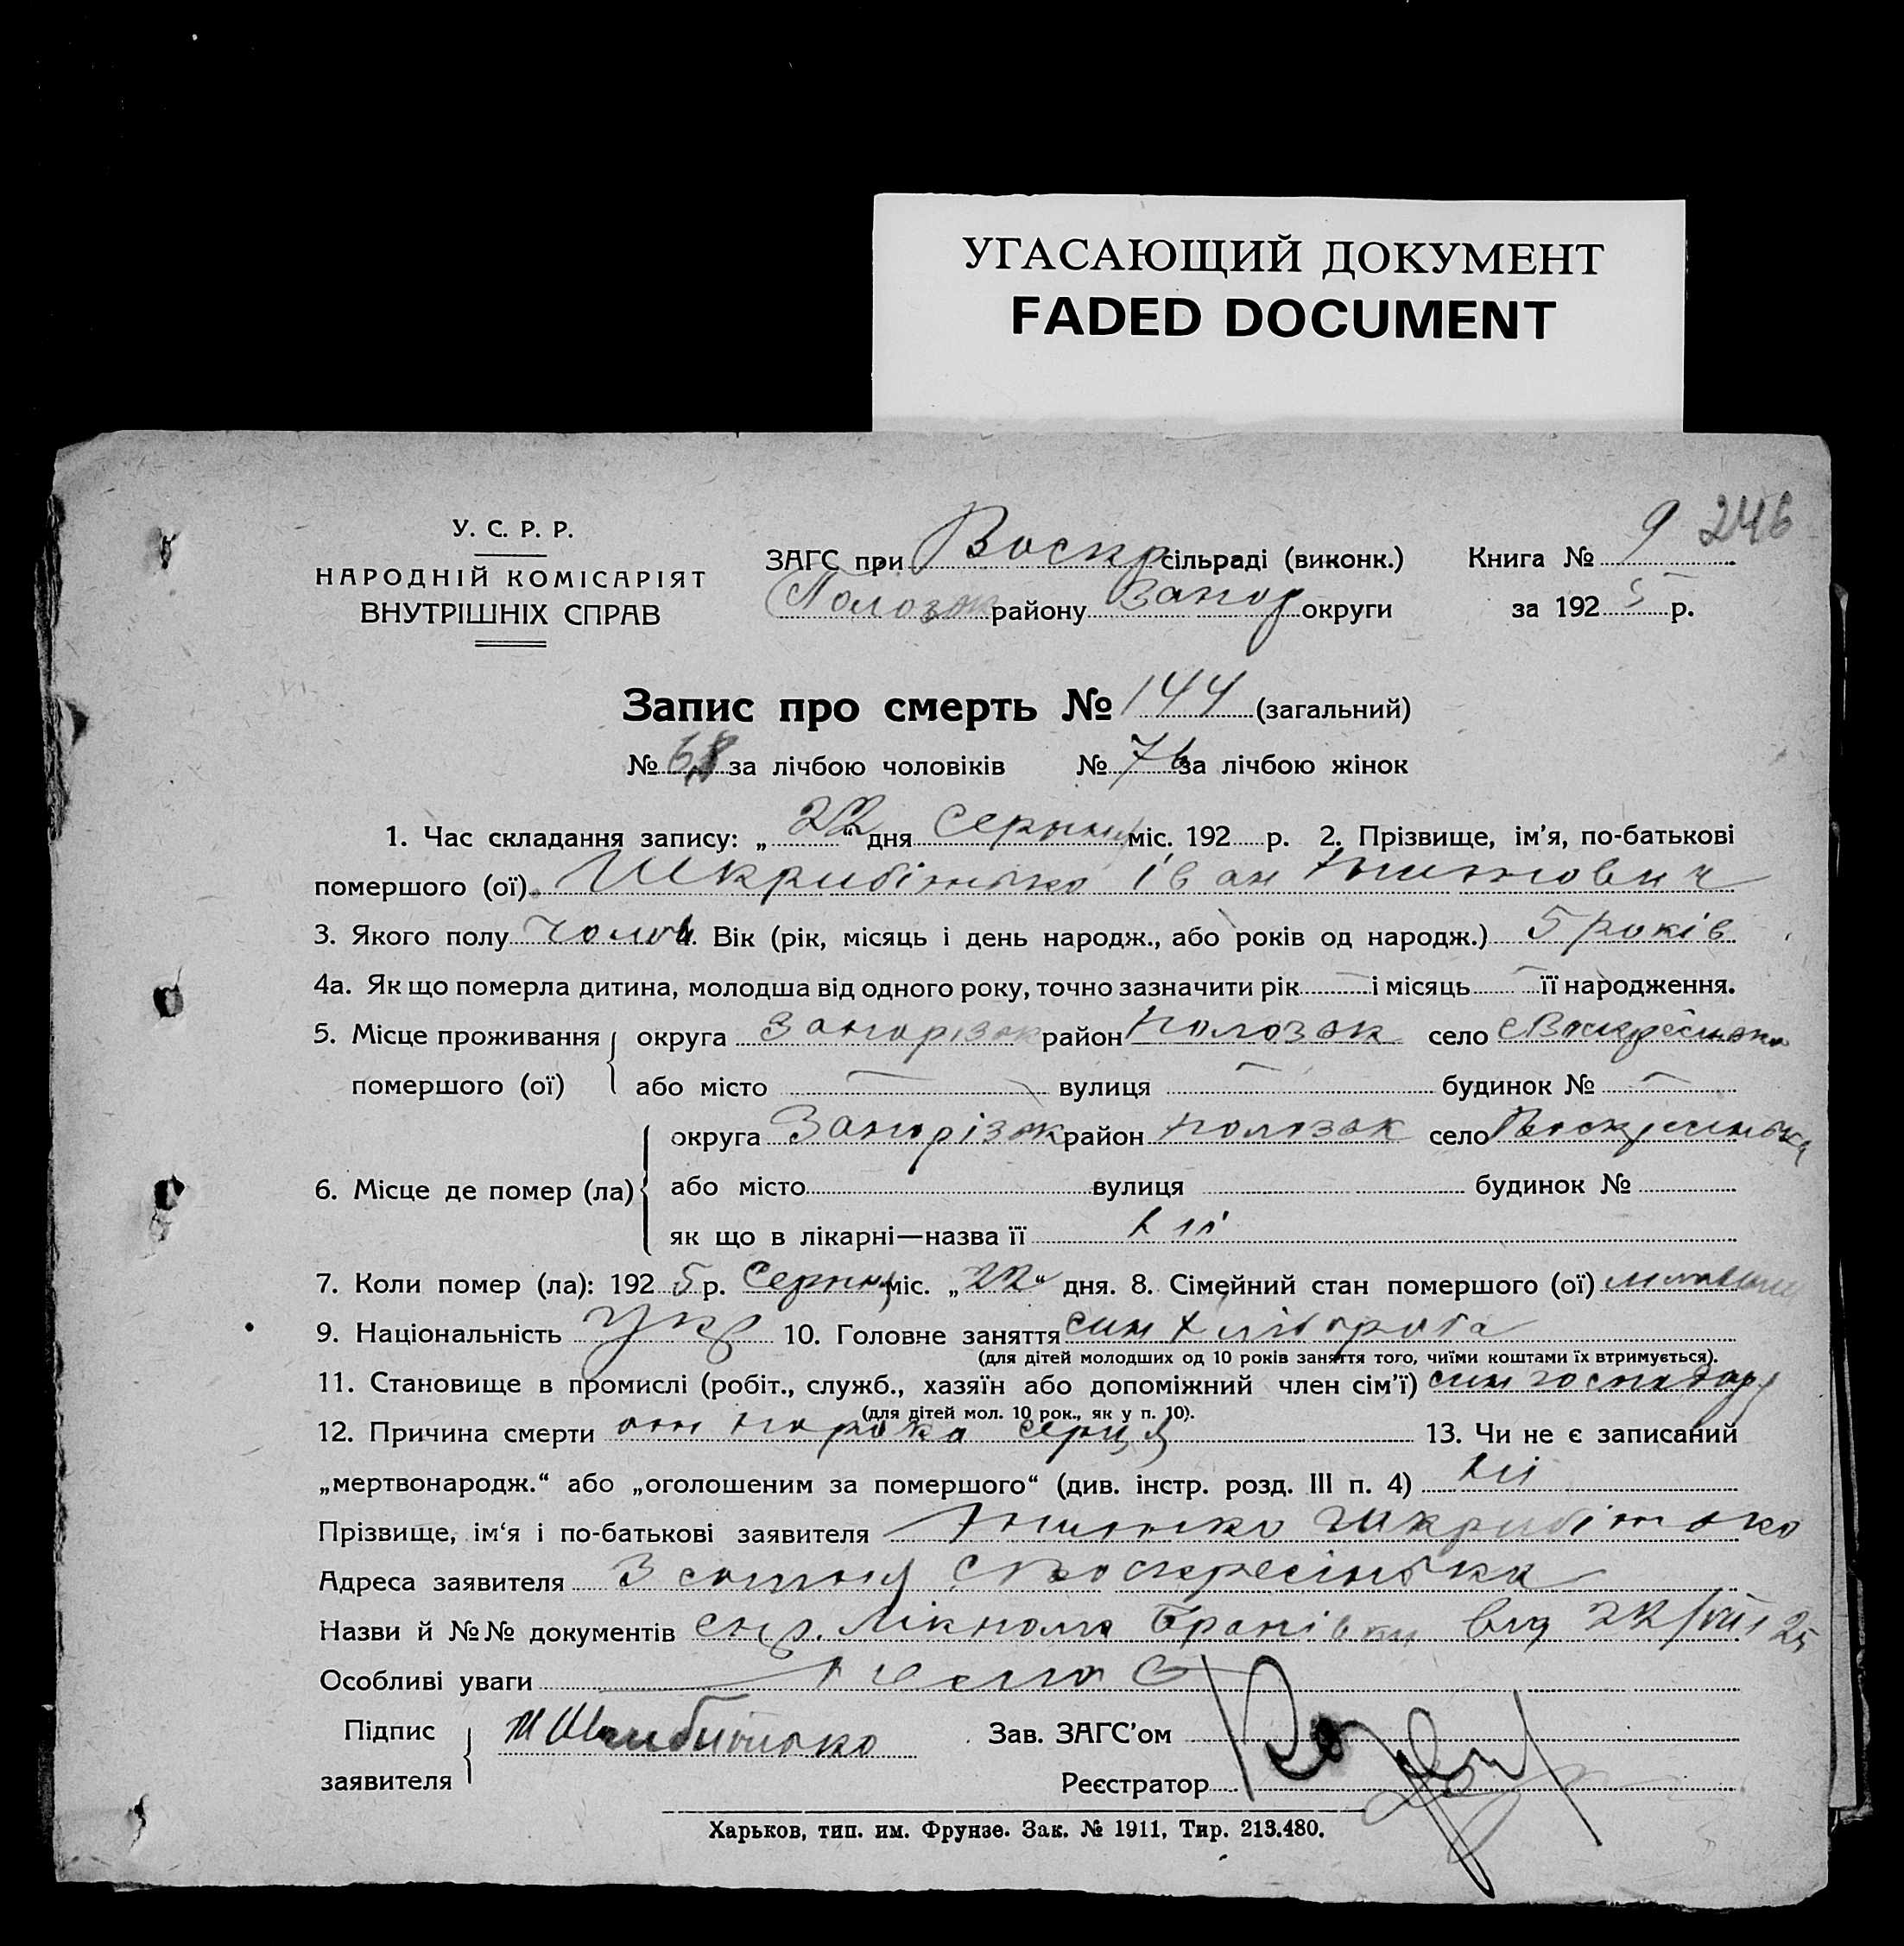 УГАСАЮЩИЙ ДОКУМЕНТ
FADED DOCUMENT
246
У. С. Р. Р.
НАРОДНІЙ КОМІСАРІЯТ
ВНУТРІШНІХ СПРАВ
ЗАГС при Воскр сільраді (виконк.) Книга № 9
Полозьк району Запор округи за 1925 р.
Запис про смерть № 144 (загальний)
№ 68 за лічбою чоловіків № 76 за лічбою жінок
1. Час складання запису: „22“ дня Серпня міс. 192 р. 2. Прізвище, ім'я, по-батькові
помершого (ої) Шкрибітько Іван
3. Якого полу чолов. Вік (рік, місяць і день народж., або років од народж.) 5 років
4а. Як що померла дитина, молодша від одного року, точно зазначити рік — і місяць — її народження.
5. Місце проживання помершого (ої) округа Запорізьк район Полозьк село Воскресінька
або місто — вулиця — будинок № —
6. Місце де помер (ла) округа Запорізьк район Полозьк село Воскресінька
або місто вулиця будинок №
як що в лікарні—назва її ні
7. Коли помер (ла): 1925 р. Серпня міс. „22“ дня. 8. Сімейний стан помершого (ої)
9. Національність Укр 10. Головне заняття син хлібороба
(для дітей молодших од 10 років заняття того, чиїми коштами їх втримується).
11. Становище в промислі (робіт., служб., хазяїн або допоміжний член сім'ї) син господаря
(для дітей мол. 10 рок., як у п. 10).
12. Причина смерти от порока серця 13. Чи не є записаний
„мертвонародж.“ або „оголошеним за помершого“ (див. інстр. розд. III п. 4) ні
Прізвище, ім'я і по-батькові заявителя Шкрибітько
Адреса заявителя 3 сотня с Воскресінька
Назви й №№ документів від 22/VIII 25
Особливі уваги нема
Підпис заявителя Зав. ЗАГС'ом
Реєстратор
Харьков, тип. им. Фрунзе. Зак. № 1911, Тир. 213.480.